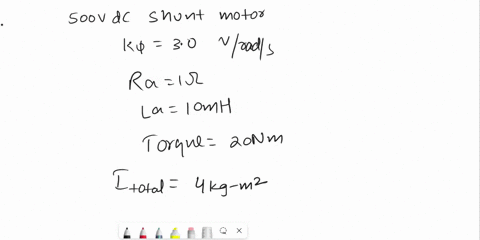 500V dc shunt motor
Kφ = 3.0 V/rad/s
Ra = 1Ω
La = 10mH
Torque = 20Nm
I total = 4 kg-m²